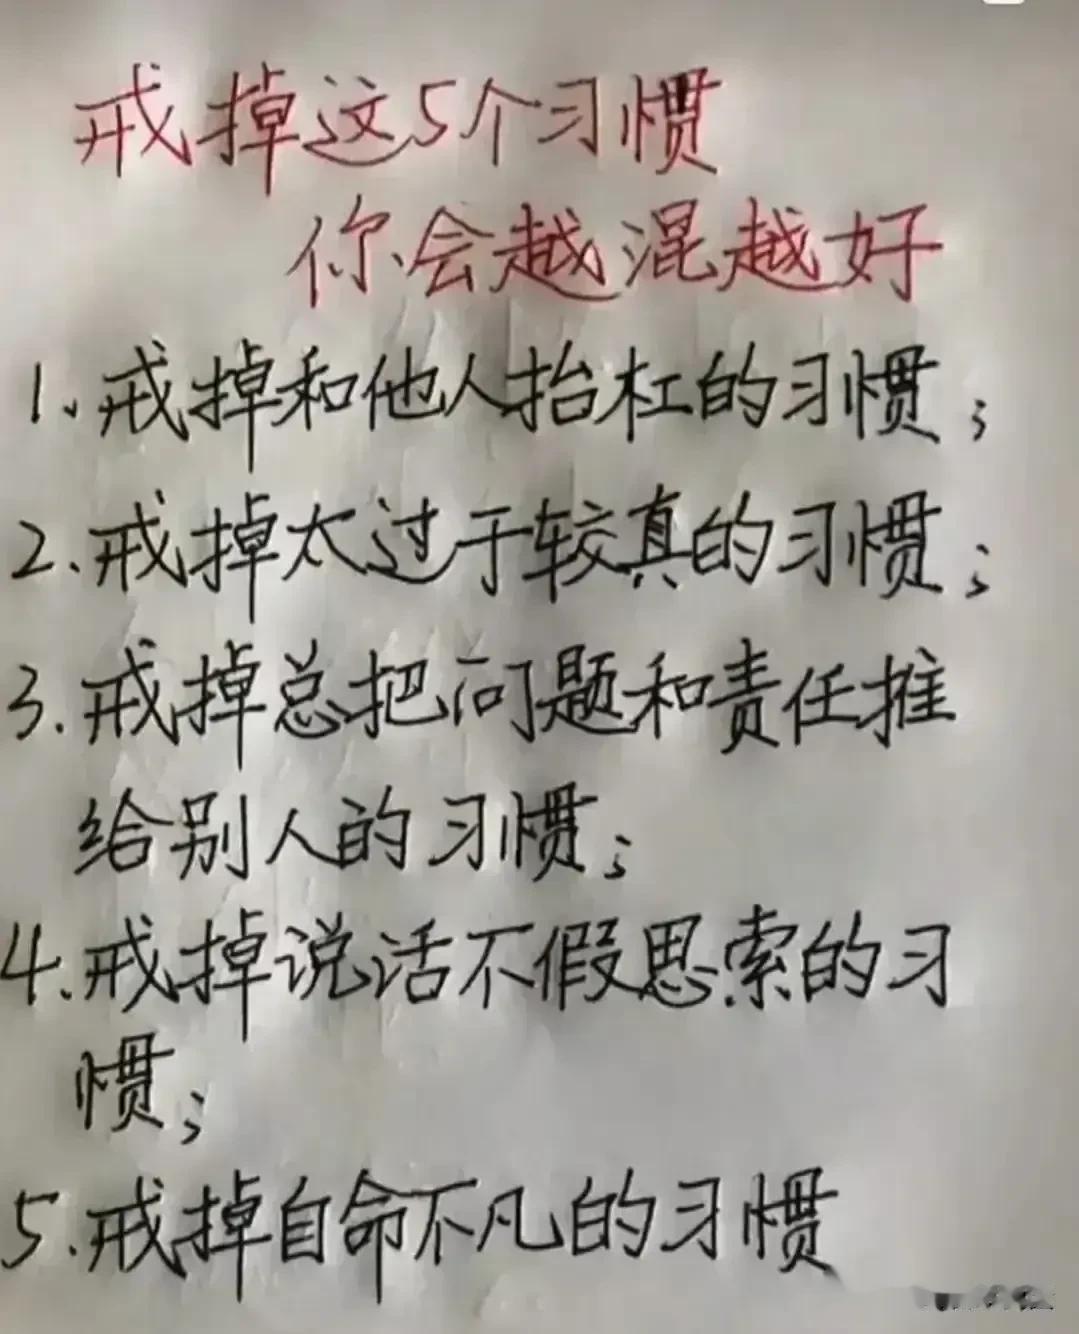 戒掉这5个习惯
你会越混越好
1、戒掉和他人抬杠的习惯；
2.戒掉太过于较真的习惯；
3.戒掉总把问题和责任推
给别人的习惯；
4.戒掉说话不假思索的习
惯；
5.戒掉自命不凡的习惯